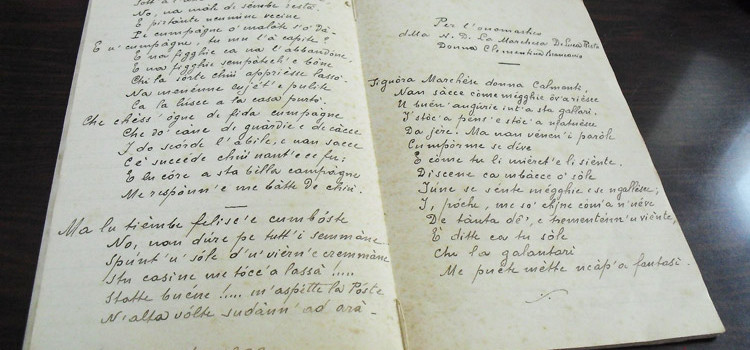 No, na màh di sèmbe resta.
È pistànte nemmìne vecìne
Pe cumpàgne o' malàte l'ò Dà-
E n'cumpàgne, tu mu l'à capìte?
E na figghie ca na l'abbandóne.
E na figghie sempàtech'e bóne
Chi la sòrte chiù apprièsse lassò.
Na menènne cujét'e pulìte
Ca la lùsce a la casa purtò.
Che chèss'ògne de fida cumpàgne
Che do' càne de guàrdie e de càcce
I do scórde l'àbile, e nan sacce
Ce succède chiù nant'e ce fu;
E lu córe a sta bèlla campàgne
Me respònn'e me bàtte de chiù.
Ma lu tièmbe felìse'e cumbóste
No, nan dure pe tutt'i semmàne
Spunt'u sóle d'u vièrn'e cremmàne
Stu casìne me tócc'a lassà!....
Statte buéne!.... m'aspètte la Pòste
N'alta vólte sudànn'ad arà-
Per l'onomastico
della N. D. La Marchesa De Luca
Donna Clementina
Signóra Marchése donna Calmonte,
Nan sàcce còme mègghie òv'arièsse
U buén'angùrie int'a sta gallarì.
I' stòc'a pens'e stòc'a nfatuèsse
Da jére. Ma nan vènen'i paròle
Cumpòrme se dève
E còme tu li mièret'e li siènte.
Discene ca mbàcce ò sóle
Iùne se sènte mègghie e se ngallèsce;
I, pòche, me so' chjne còm'a n'néve
De tànta dê', e trementènn'u viènte,
È ditte ca tu sòle
Chu la galantarì
Me puéte mètte ncàp'a fantasì.